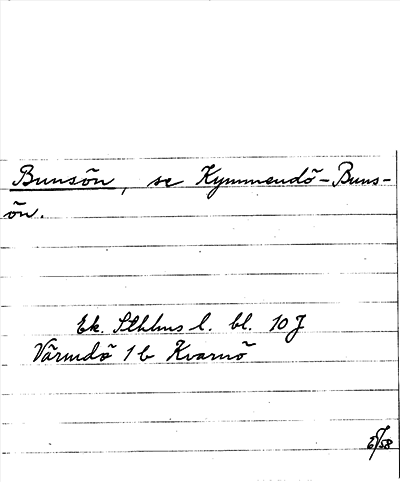 Bunsön, se Kymmendö-Buns-
ön.
Ek. Sthlms l. bl. 10 J
Värmdö 1 b Kvarnö